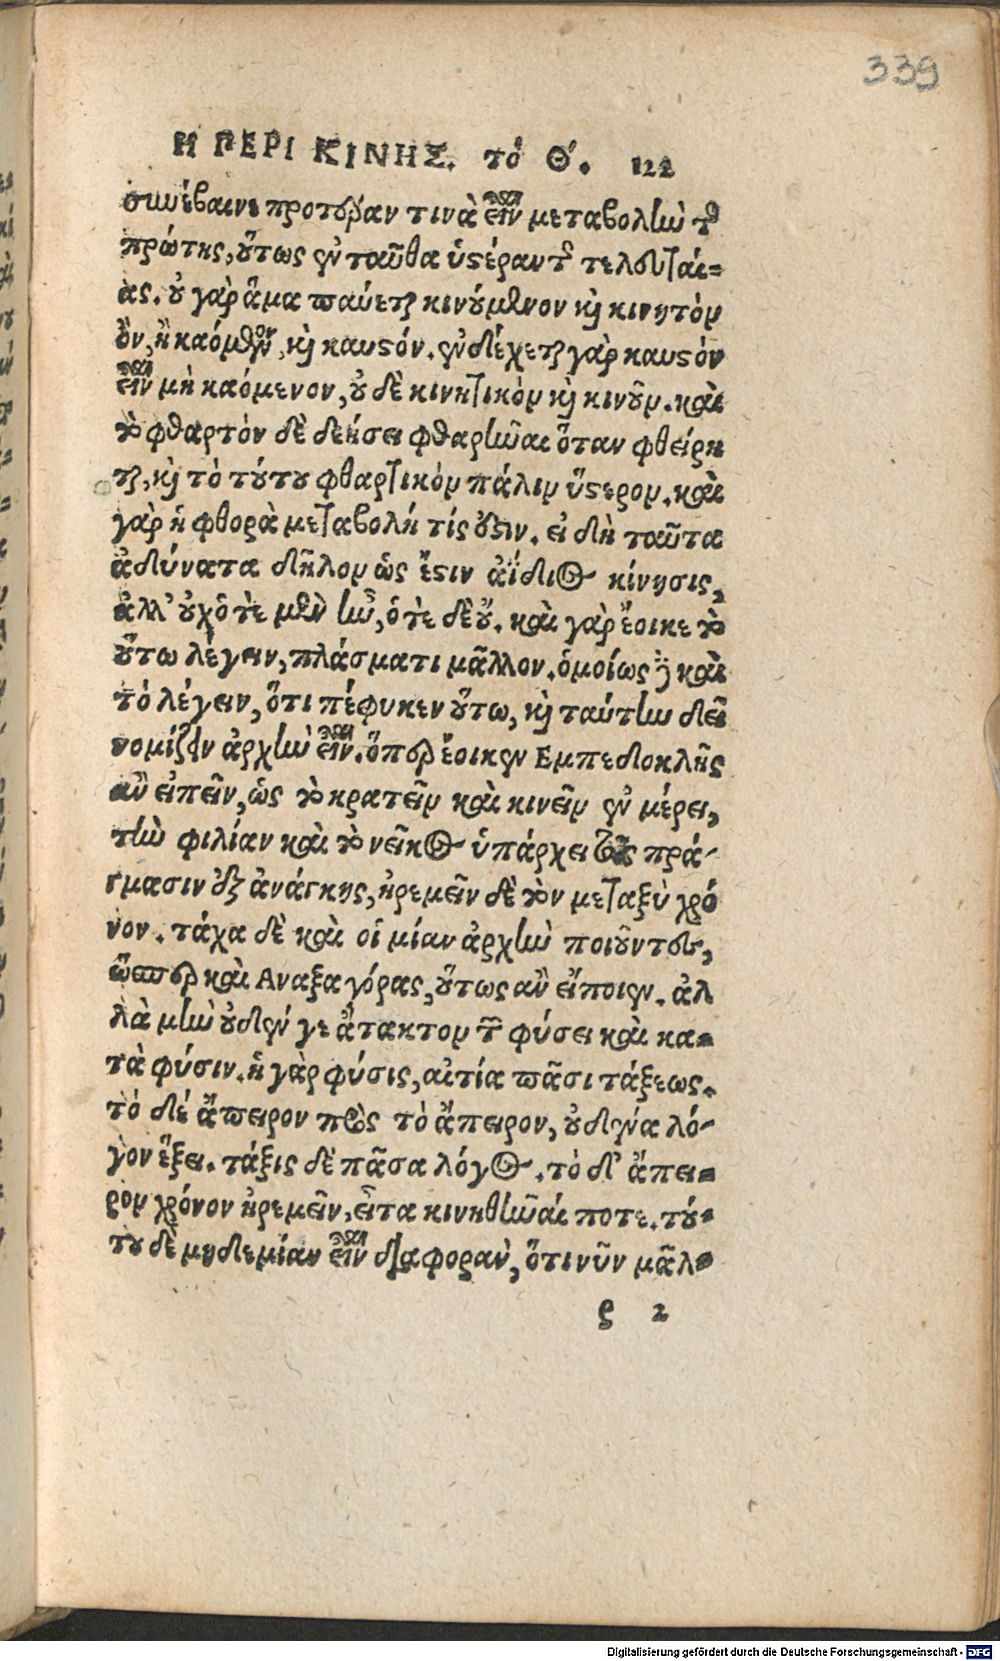 339
Η ΠΕΡΙ ΚΙΝΗΣ. τὸ Θ΄. 122
συνέβαινε προτέραν τινὰ εἶναι μεταβολὴν τῆς
πρώτης, οὕτως ἐνταῦθα ὑστέραν τῆς τελευταί=
ας. οὐ γὰρ ἅμα παύεται κινούμενον καὶ κινητὸν
ὂν, ἢ καόμενον, καὶ καυστόν. ἐνδέχεται γὰρ καυστὸν
εἶναι μὴ καόμενον, οὐδὲ κινητικὸν καὶ κινοῦν. καὶ
τὸ φθαρτὸν δὲ δεήσει φθαρῆναι ὅταν φθείρη
ται, καὶ τὸ τούτου φθαρτικὸν πάλιν ὕστερον. καὶ
γὰρ ἡ φθορὰ μεταβολή τίς ἐστιν. εἰ δὴ ταῦτα
ἀδύνατα δῆλον ὡς ἔστιν ἀΐδιος κίνησις,
ἀλλ' οὐχ ὁτὲ μὲν ἦν, ὁτὲ δὲ οὔ. καὶ γὰρ ἔοικε τὸ
οὕτω λέγειν, πλάσματι μᾶλλον. ὁμοίως δὲ καὶ
τὸ λέγειν, ὅτι πέφυκεν οὕτω, καὶ ταύτην δεῖ
νομίζειν ἀρχὴν εἶναι. ὅπερ ἔοικεν Εμπεδοκλῆς
ἂν εἰπεῖν, ὡς τὸ κρατεῖν καὶ κινεῖν ἐν μέρει,
τὴν φιλίαν καὶ τὸ νεῖκος ὑπάρχει τοῖς πρά-
γμασιν ἐξ ἀνάγκης, ἠρεμεῖν δὲ τὸν μεταξὺ χρό
νον. τάχα δὲ καὶ οἱ μίαν ἀρχὴν ποιοῦντες,
ὥσπερ καὶ Αναξαγόρας, οὕτως ἂν εἴποιεν. ἀλ
λὰ μὴν οὐδέν γε ἄτακτον τῶν φύσει καὶ κα=
τὰ φύσιν. ἡ γὰρ φύσις, αἰτία πᾶσι τάξεως.
τὸ δέ ἄπειρον πρὸς τὸ ἄπειρον, οὐδένα λό-
γον ἔξει. τάξις δὲ πᾶσα λόγος. τὸ δ' ἄπει=
ρον χρόνον ἠρεμεῖν, εἶτα κινηθῆναί ποτε. τού=
του δὲ μηδεμίαν εἶναι διαφορὰν, ὅτι νῦν μᾶλ=
ρ 2
Digitalisierung gefördert durch die Deutsche Forschungsgemeinschaft - DFG